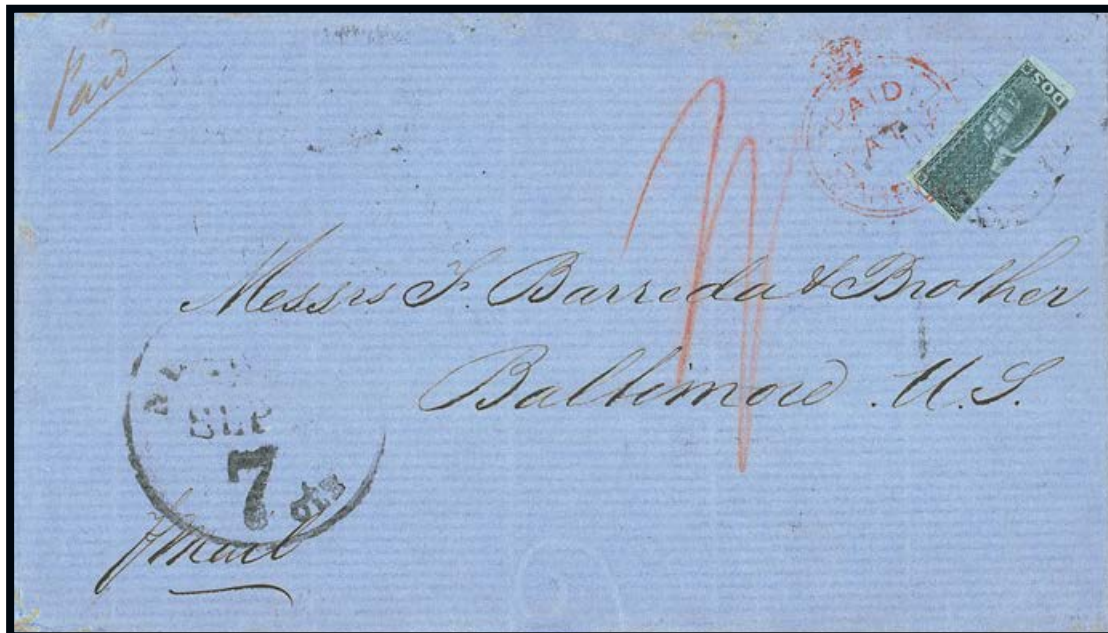 Paid
PAID
AT
DOS
Messrs F. Barreda & Brother
Baltimore U.S.
SEP
7
cts